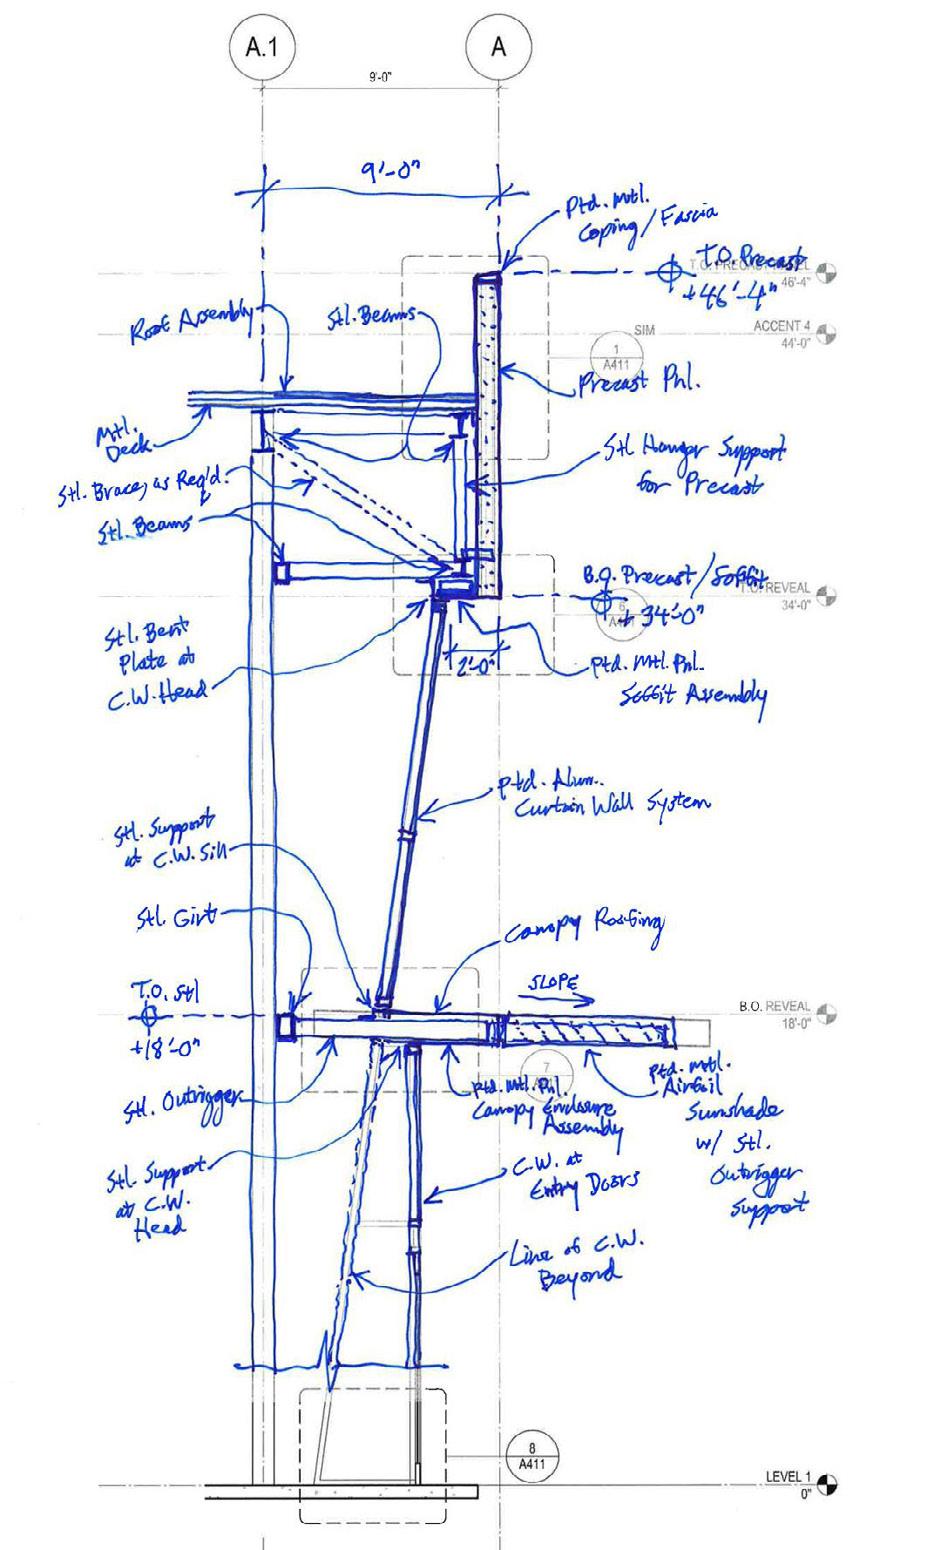 A.1
A
9'-0"
9'-0"
Ptd. Mtl.
Coping/Fascia
T.O. Precast
+46'-4"
46'-4"
Roof Assembly
Stl. Beams
SIM
ACCENT 4
44'-0"
1
A411
Precast Pnl.
Mtl.
Deck
Stl. Hanger Support
for Precast
Stl. Braces as Req'd.
Stl. Beams
B.O. Precast/Soffit
T.O. REVEAL
+34'-0"
34'-0"
6
Stl. Bent
Plate at
C.W. Head
2'-0"
Ptd. Mtl. Pnl.
Soffit Assembly
Ptd. Alum.
Curtain Wall System
Stl. Support
at C.W. Sill
Stl. Girt
Canopy Roofing
SLOPE
T.O. Stl
+18'-0"
B.O. REVEAL
18'-0"
7
Stl. Outrigger
Ptd. Mtl. Pnl.
Canopy Enclosure
Assembly
Ptd. Mtl.
Airfoil
Sunshade
w/ Stl.
Outrigger
Support
Stl. Support
at C.W.
Head
C.W. at
Entry Doors
Line of C.W.
Beyond
8
A411
LEVEL 1
0"